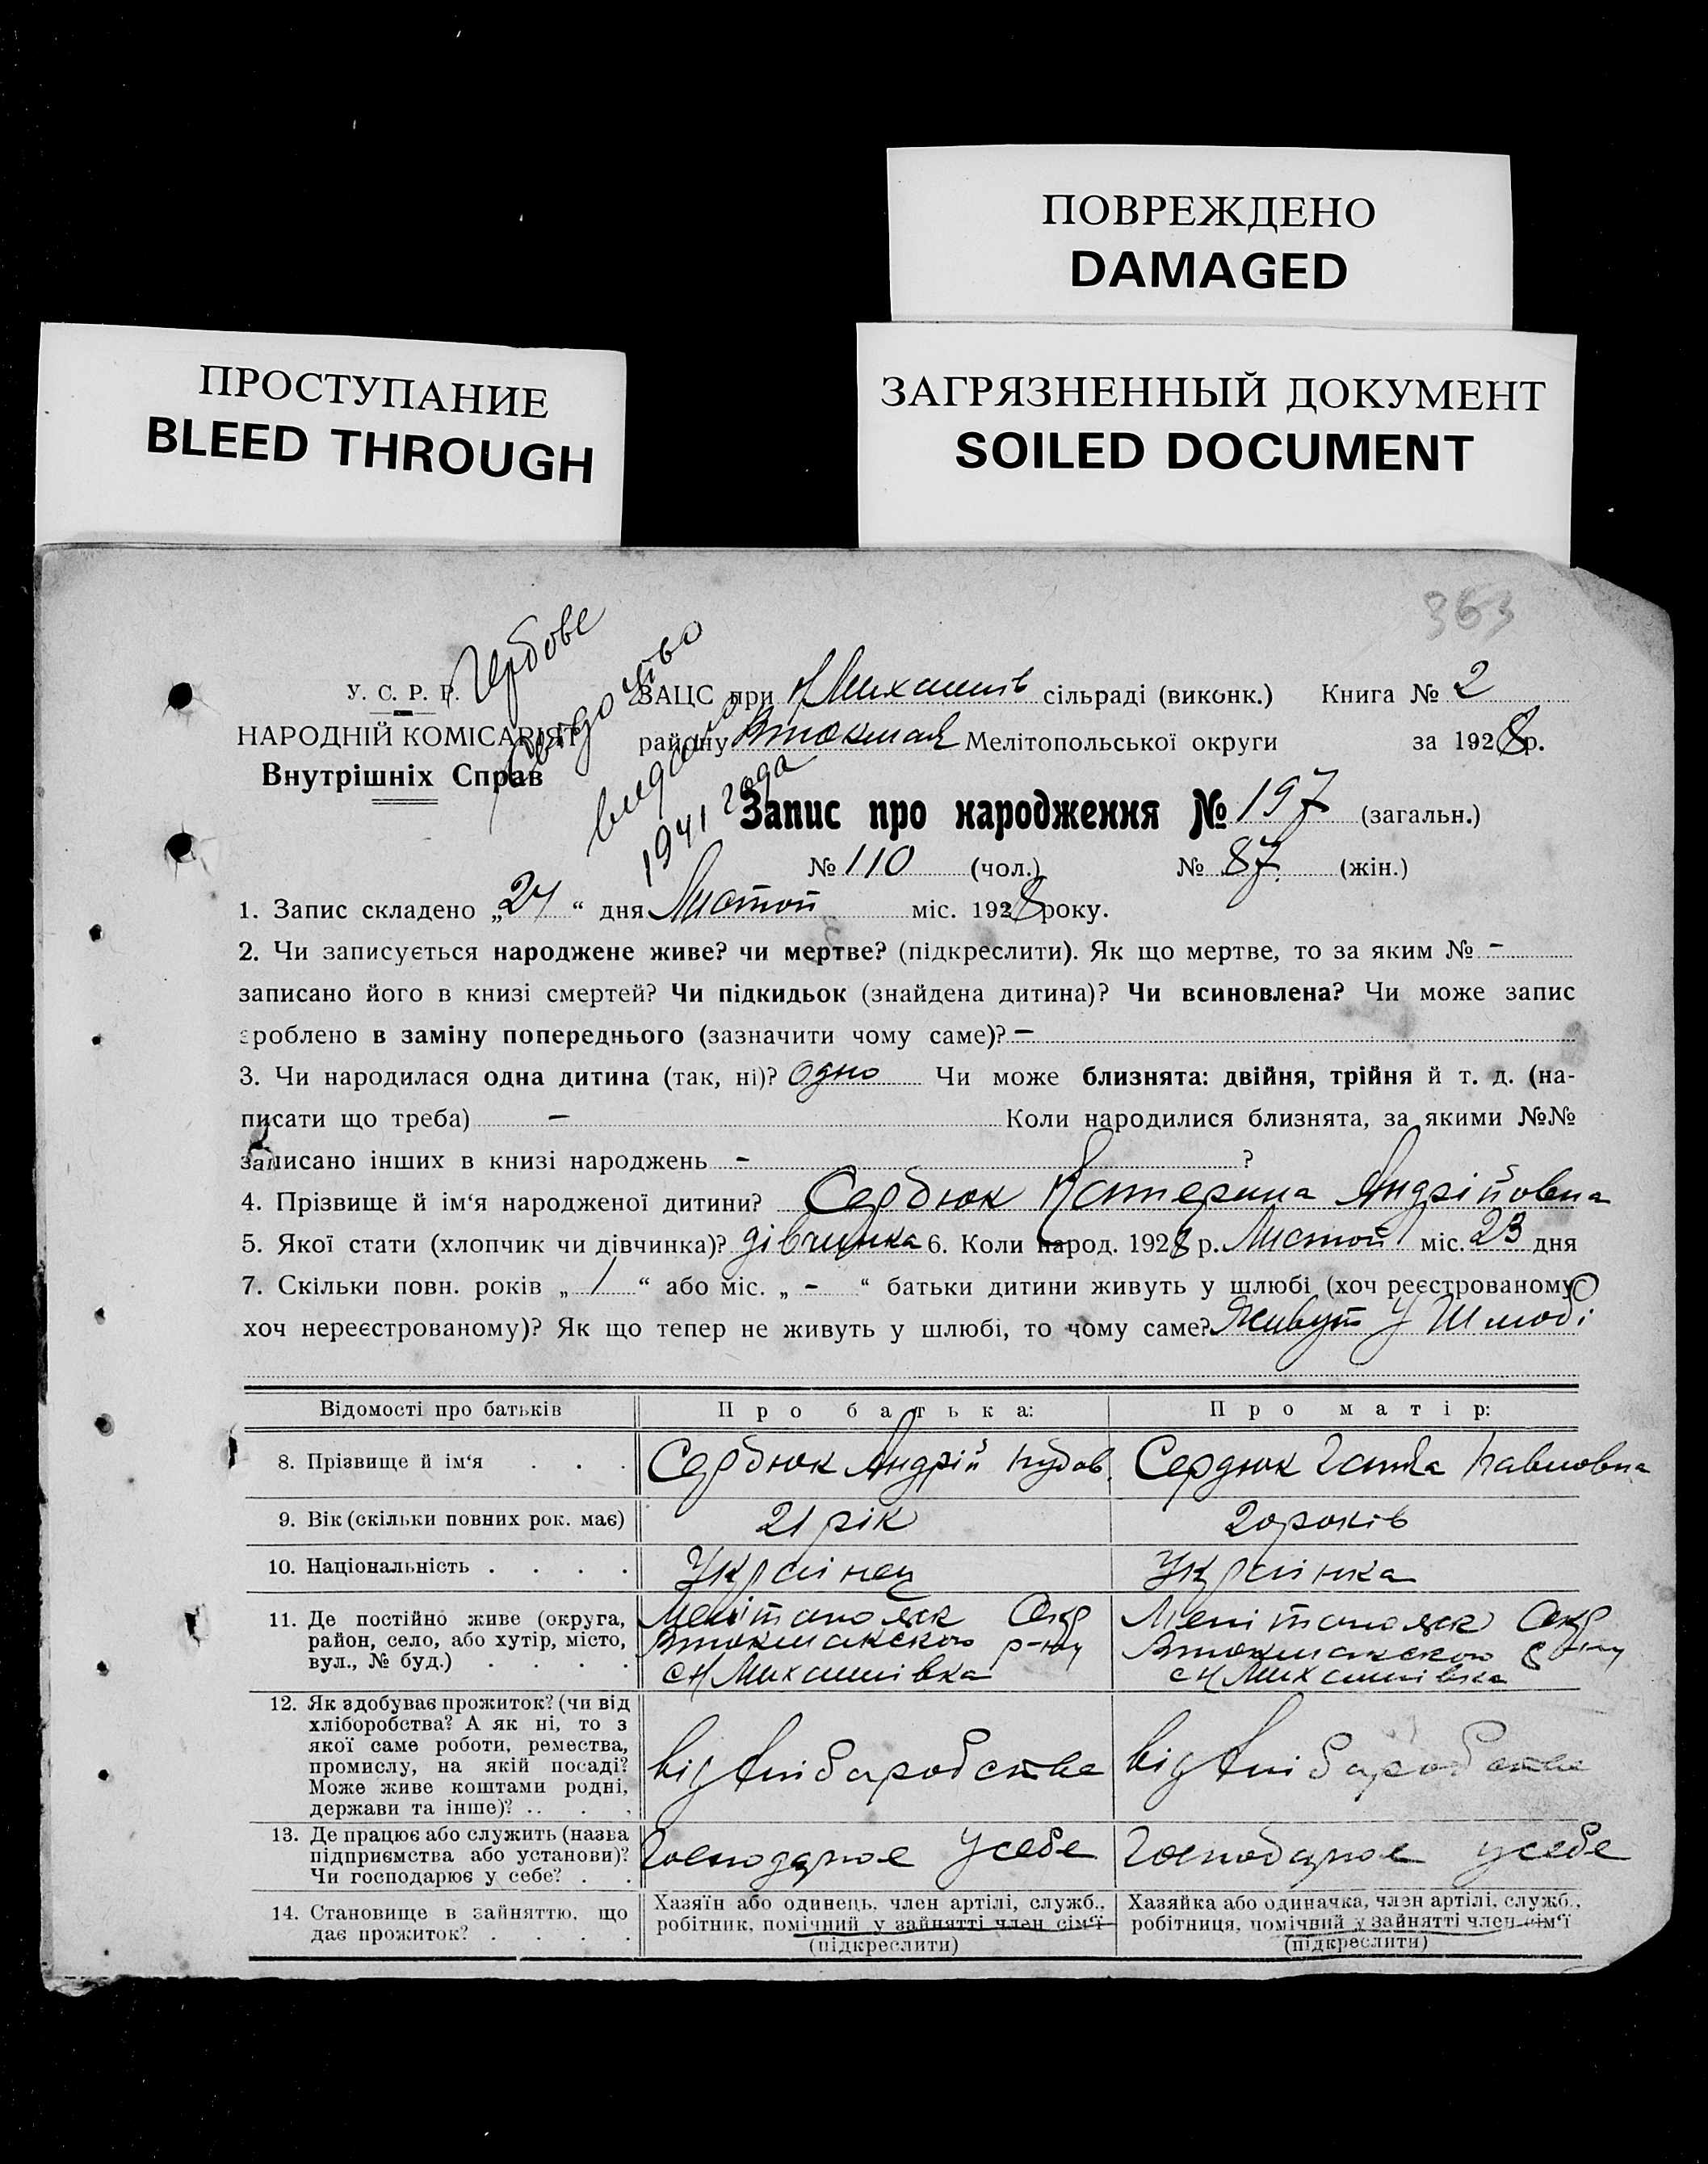 ПОВРЕЖДЕНО
DAMAGED
ПРОСТУПАНИЕ
BLEED THROUGH
ЗАГРЯЗНЕННЫЙ ДОКУМЕНТ
SOILED DOCUMENT
363
Гербове
видано
1941 года
У. С. Р. Р.
НАРОДНІЙ КОМІСАРІЯТ
Внутрішніх Справ
ЗАЦС при сільраді (виконк.) Книга № 2
району Мелітопольської округи за 1928 р.
Запис про народження № 197 (загальн.)
№ 110 (чол.) № 87 (жін.)
1. Запис складено „24“ дня Листоп міс. 1928 року.
2. Чи записується народжене живе? чи мертве? (підкреслити). Як що мертве, то за яким № -
записано його в книзі смертей? Чи підкидьок (знайдена дитина)? Чи всиновлена? Чи може запис
зроблено в заміну попереднього (зазначити чому саме)? —
3. Чи народилася одна дитина (так, ні)? одно Чи може близнята: двійня, трійня й т. д. (на-
писати що треба) — Коли народилися близнята, за якими №№
записано інших в книзі народжень - ?
4. Прізвище й ім‘я народженої дитини? Сердюк Катерина Андрійовна
5. Якої стати (хлопчик чи дівчинка)? дівчинка 6. Коли народ. 1928 р. Листоп міс. 23 дня
7. Скільки повн. років „ 1 “ або міс. „ - “ батьки дитини живуть у шлюбі (хоч реєстрованому
хоч нереєстрованому)? Як що тепер не живуть у шлюбі, то чому саме? Живут У Шлюбі
Відомості про батьків Про батька: Про матір:
8. Прізвище й ім‘я . . . Сердюк Андрій Сердюк Ганна Павловна
9. Вік (скільки повних рок. має) 21 рік 20 років
10. Національність . . . . Українец Українка
11. Де постійно живе (округа, Окр Окр
район, село, або хутір, місто, Втокмакского р-ну Втокмакского р-ну
вул., № буд.) . . . . с Н Михайлівка с Н Михайлівка
12. Як здобуває прожиток? (чи від
хліборобства? А як ні, то з
якої саме роботи, ремества,
промислу, на якій посаді? від хліборобства від хліборобства
Може живе коштами родні,
держави та інше)? .. . .
13. Де працює або служить (назва
підприємства або установи)? Господарює у себе Господарює у себе
Чи господарює у себе? . .
14. Становище в зайняттю, що Хазяїн або одинець, член артілі, служб., Хазяйка або одиначка, член артілі, служб.,
дає прожиток? . . . . робітник, помічний у зайнятті член сім‘ї робітниця, помічний у зайнятті член сім‘ї
(підкреслити) (підкреслити)